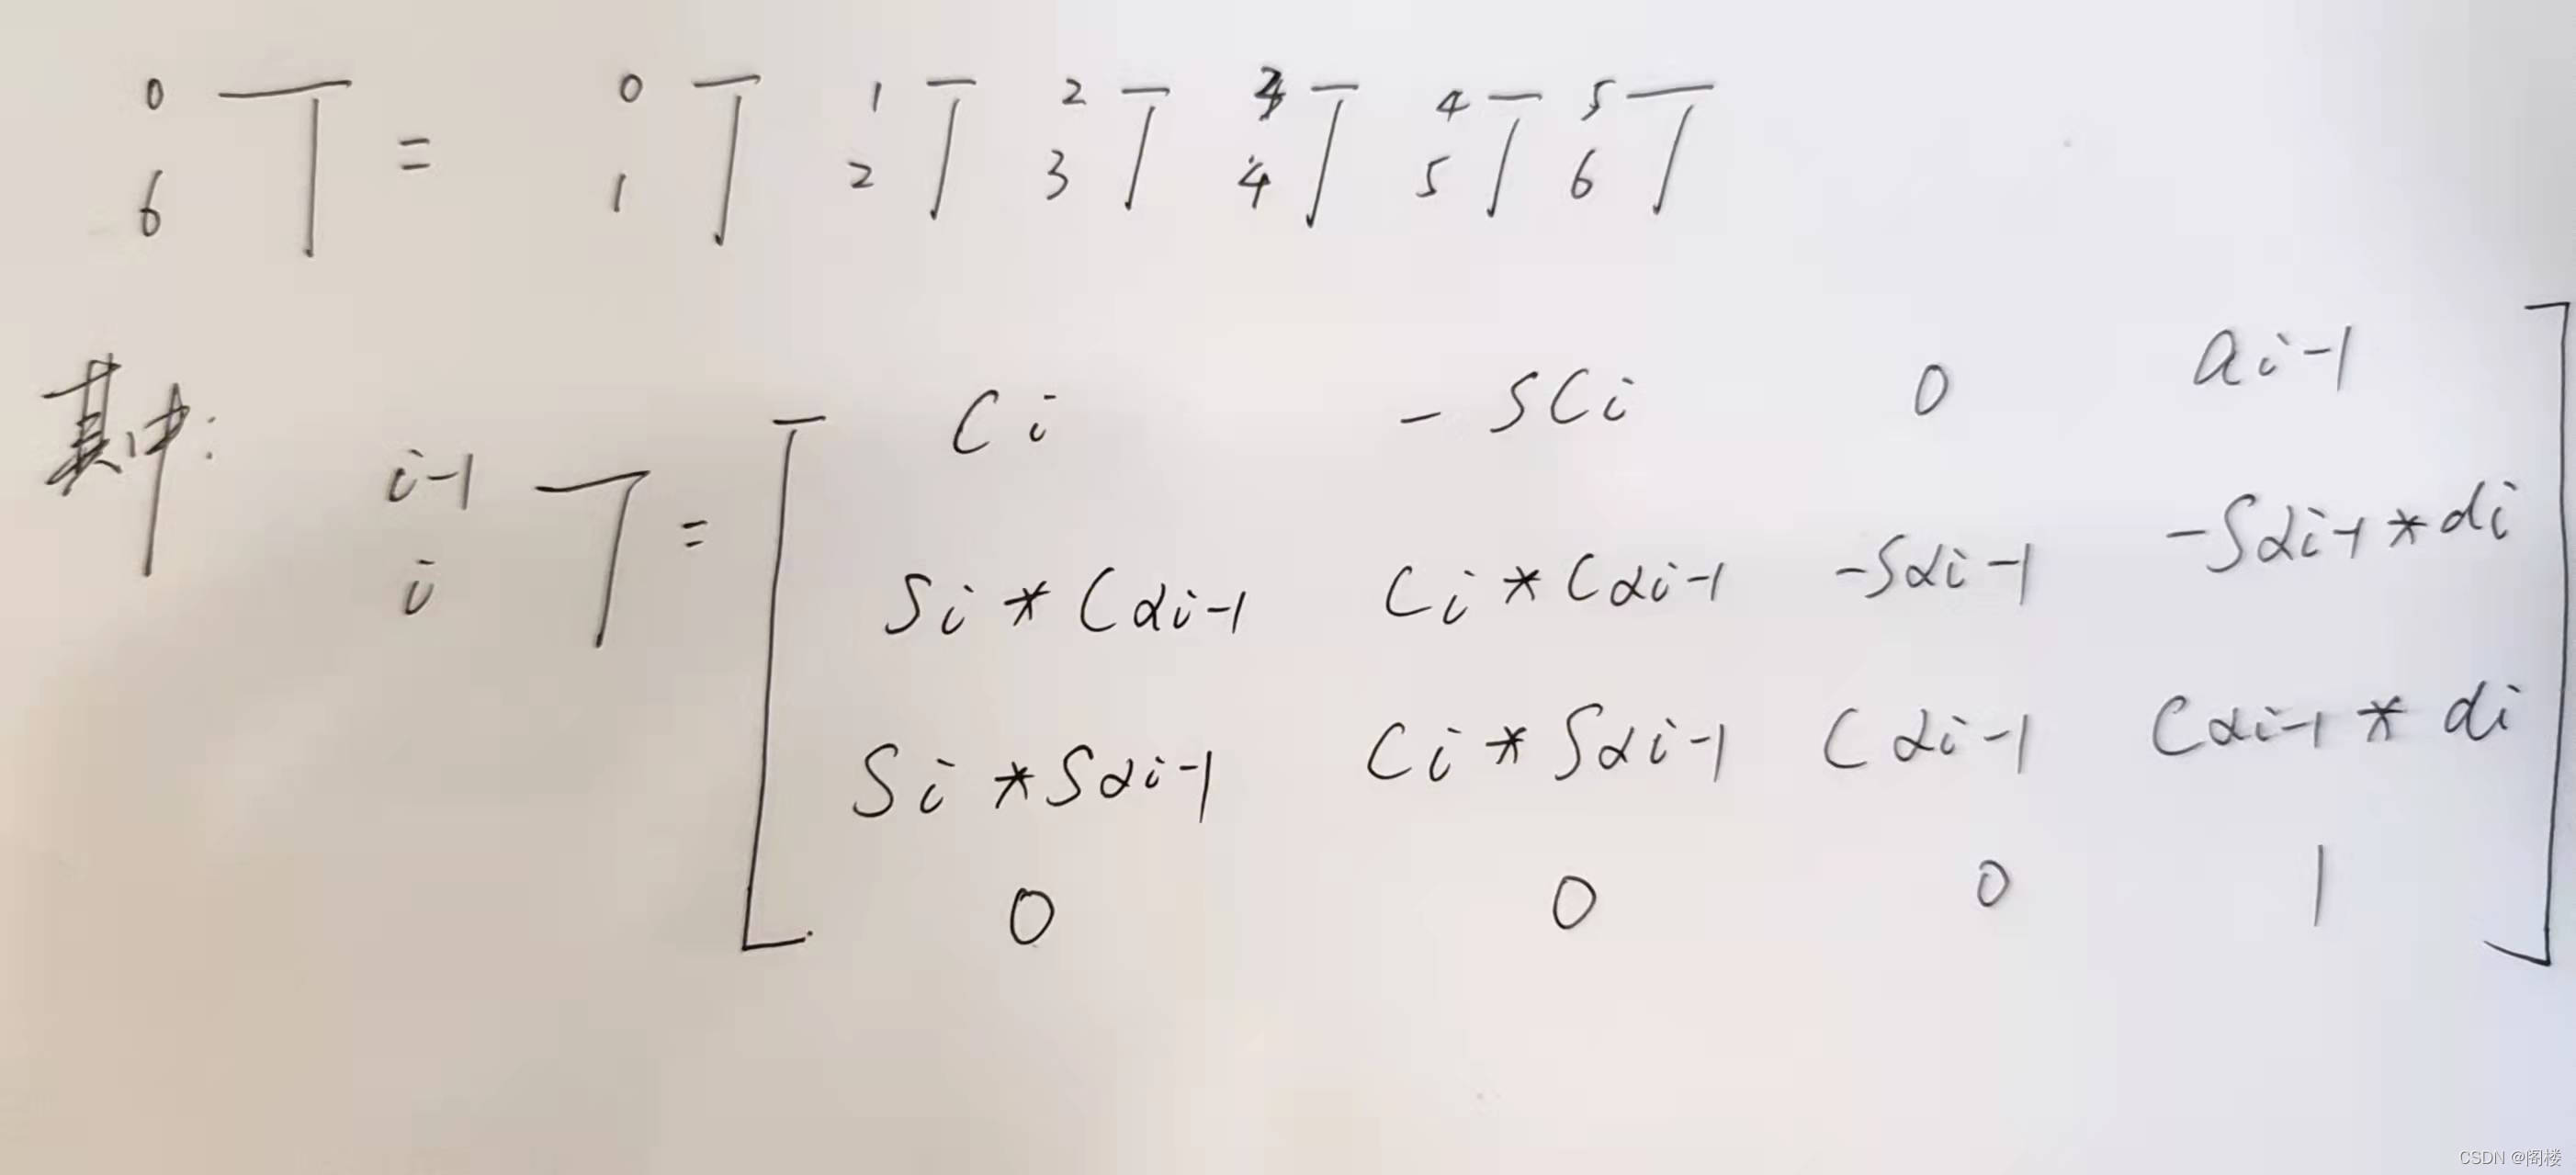 ⁰₆T = ⁰₁T ¹₂T ²₃T ³₄T ⁴₅T ⁵₆T
其中:
ⁱ⁻¹ᵢT =
Ci -SCi 0 ai-1
Si*Cαi-1 Ci*Cαi-1 -Sαi-1 -Sαi-1*di
Si*Sαi-1 Ci*Sαi-1 Cαi-1 Cαi-1*di
0 0 0 1
CSDN @阁楼